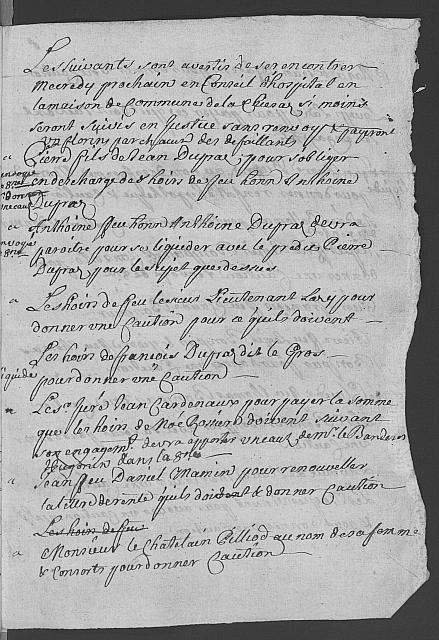 Les suivants sont avertir de se rencontrer
Mecredy prochain en Conseil d'hospital en
la maison de Commune de la si moins
seront suivis en Justice sans renvoy & payront
florins par chacun des defaillants
Pierre fils de Jean Dupraz pour s'obliger
en decharge des hoirs de feu honn Anthoine
Dupraz
Anthoine feu honn Anthoine Dupraz devra
paroitre pour se liquider avec le predit Pierre
Dupraz pour le sujet que dessus
Les hoirs de feu le sieur Lieutenant pour
donner une Caution pour ce qu'ils doivent
Les hoirs de françois Dupraz dit le Gros
pour donner une Caution
Les Sr Juré Jean Cardenaux pour payer la somme
que les hoirs de Noé doivent suivant
son engagemt devra apporter un eaux de Mr le Banderet
dans la
Jean feu Daniel Mamin pour renouveller
la lettre de rente qu'ils doivent & donner Caution
Les hoirs de feu
Monsieur le Châtelain Pilliod au nom de sa femme
& Consorts pour donner Caution